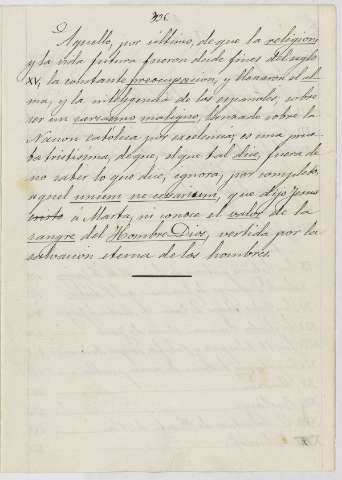 396
Aquello, por último, de que la religion,
y la vida futura fueron desde fines del siglo
XV, la constante preocupacion, y llenaron el al-
ma, y la inteligencia de los españoles, sobre
ser un sarcasmo maligno, lanzado sobre la
Nacion católica por excelencia, es una prue-
ba tristísima, de que, el que tal dice, fuera de
no saber lo que dice, ignora, por completo,
aquel unum necesarium, que dijo Jesus
á Marta, ni conoce el valor de la
sangre del Hombre-Dios, vertida por la
salvacion eterna de los hombres.